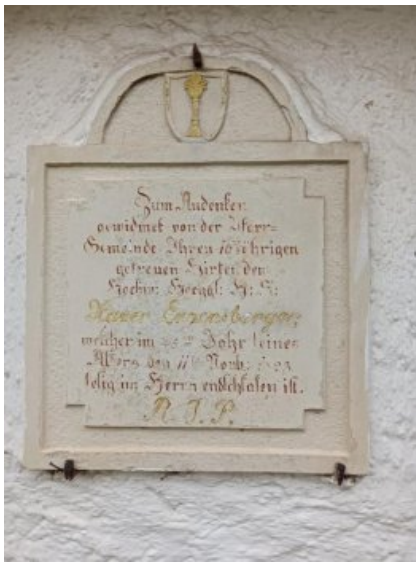 Zum Andenken
gewidmet von der Pfarr=
Gemeinde Ihren 16jährigen
getreuen Hirten den
Hochw: H: H:
Xaver
welcher im Jahr seines
Alters den 11ten Novb:
selig im Herrn entschlafen ist.
R. I. P.